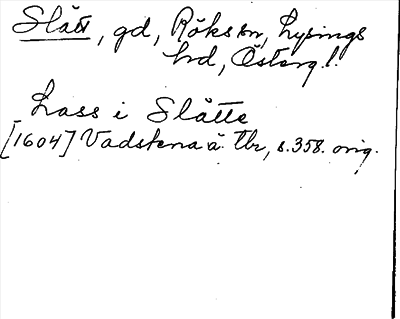 Slått, gd, Röks sn, Lysings
hd, Österg l.
Lass i Slåtte
[1604] Vadstena ä. tbr, s.358. orig.